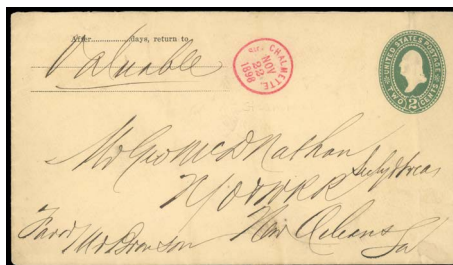 After............days, return to
Valuable
STR. CHALMETTE.
NOV
22
1898
UNITED STATES POSTAGE
TWO 2 CENTS
Mr Geo McD Nathan
New Orleans
La
Favor Mr Bronson